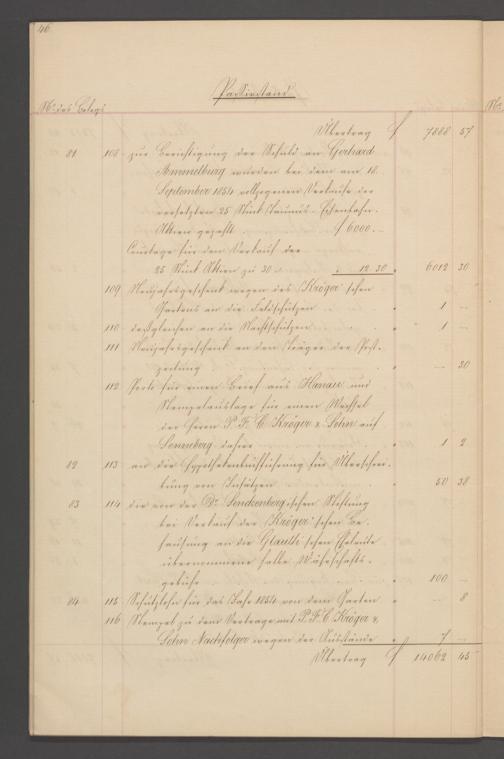 46.
Passivstand
No. des Belegs
Übertrag f 7888 57
81 108 zur Berichtigung der Schuld an Gerhard
Ammelburg wurden bei dem am 18.
September 1854 vollzogenen Verkaufe der
versetzten 25 Stück Taunus-Eisenbahn-
Aktien gezahlt f 6000.-
Courtage für den Verkauf der
25 Stück Aktien zu 30 12 30 6012 30
109 Neujahrsgeschenk wegen des Kröger'schen
Gartens an die Feldschützen " 1 -
110 desgleichen an die Nachtschützen " 1 -
111 Neujahrsgeschenk an den Träger der Post-
zeitung " - 30
112 Porto für einen Brief aus Hanau und
Stempelauslage für einen Wechsel
der Herrn P. F. C. Kröger & Sohn auf
Sonneberg " 1 2
82 113 an die Hypothekenbuchführung für Überschrei-
bung von Insätzen " 50 38
83 114 die von der Dr. Senckenbergischen Stiftung
bei Verkauf der Kröger'schen Be-
hausung an die Eheleute
übernommene halbe Währschafts-
gebühr " 100 -
84 115 Schützlohn für das Jahr 1854 von dem Garten " - 8
116 Stempel zu dem Vertrage mit P. F. C. Kröger &
Sohn Nachfolger wegen der Ausstände " 7 -
Übertrag f 14062 45